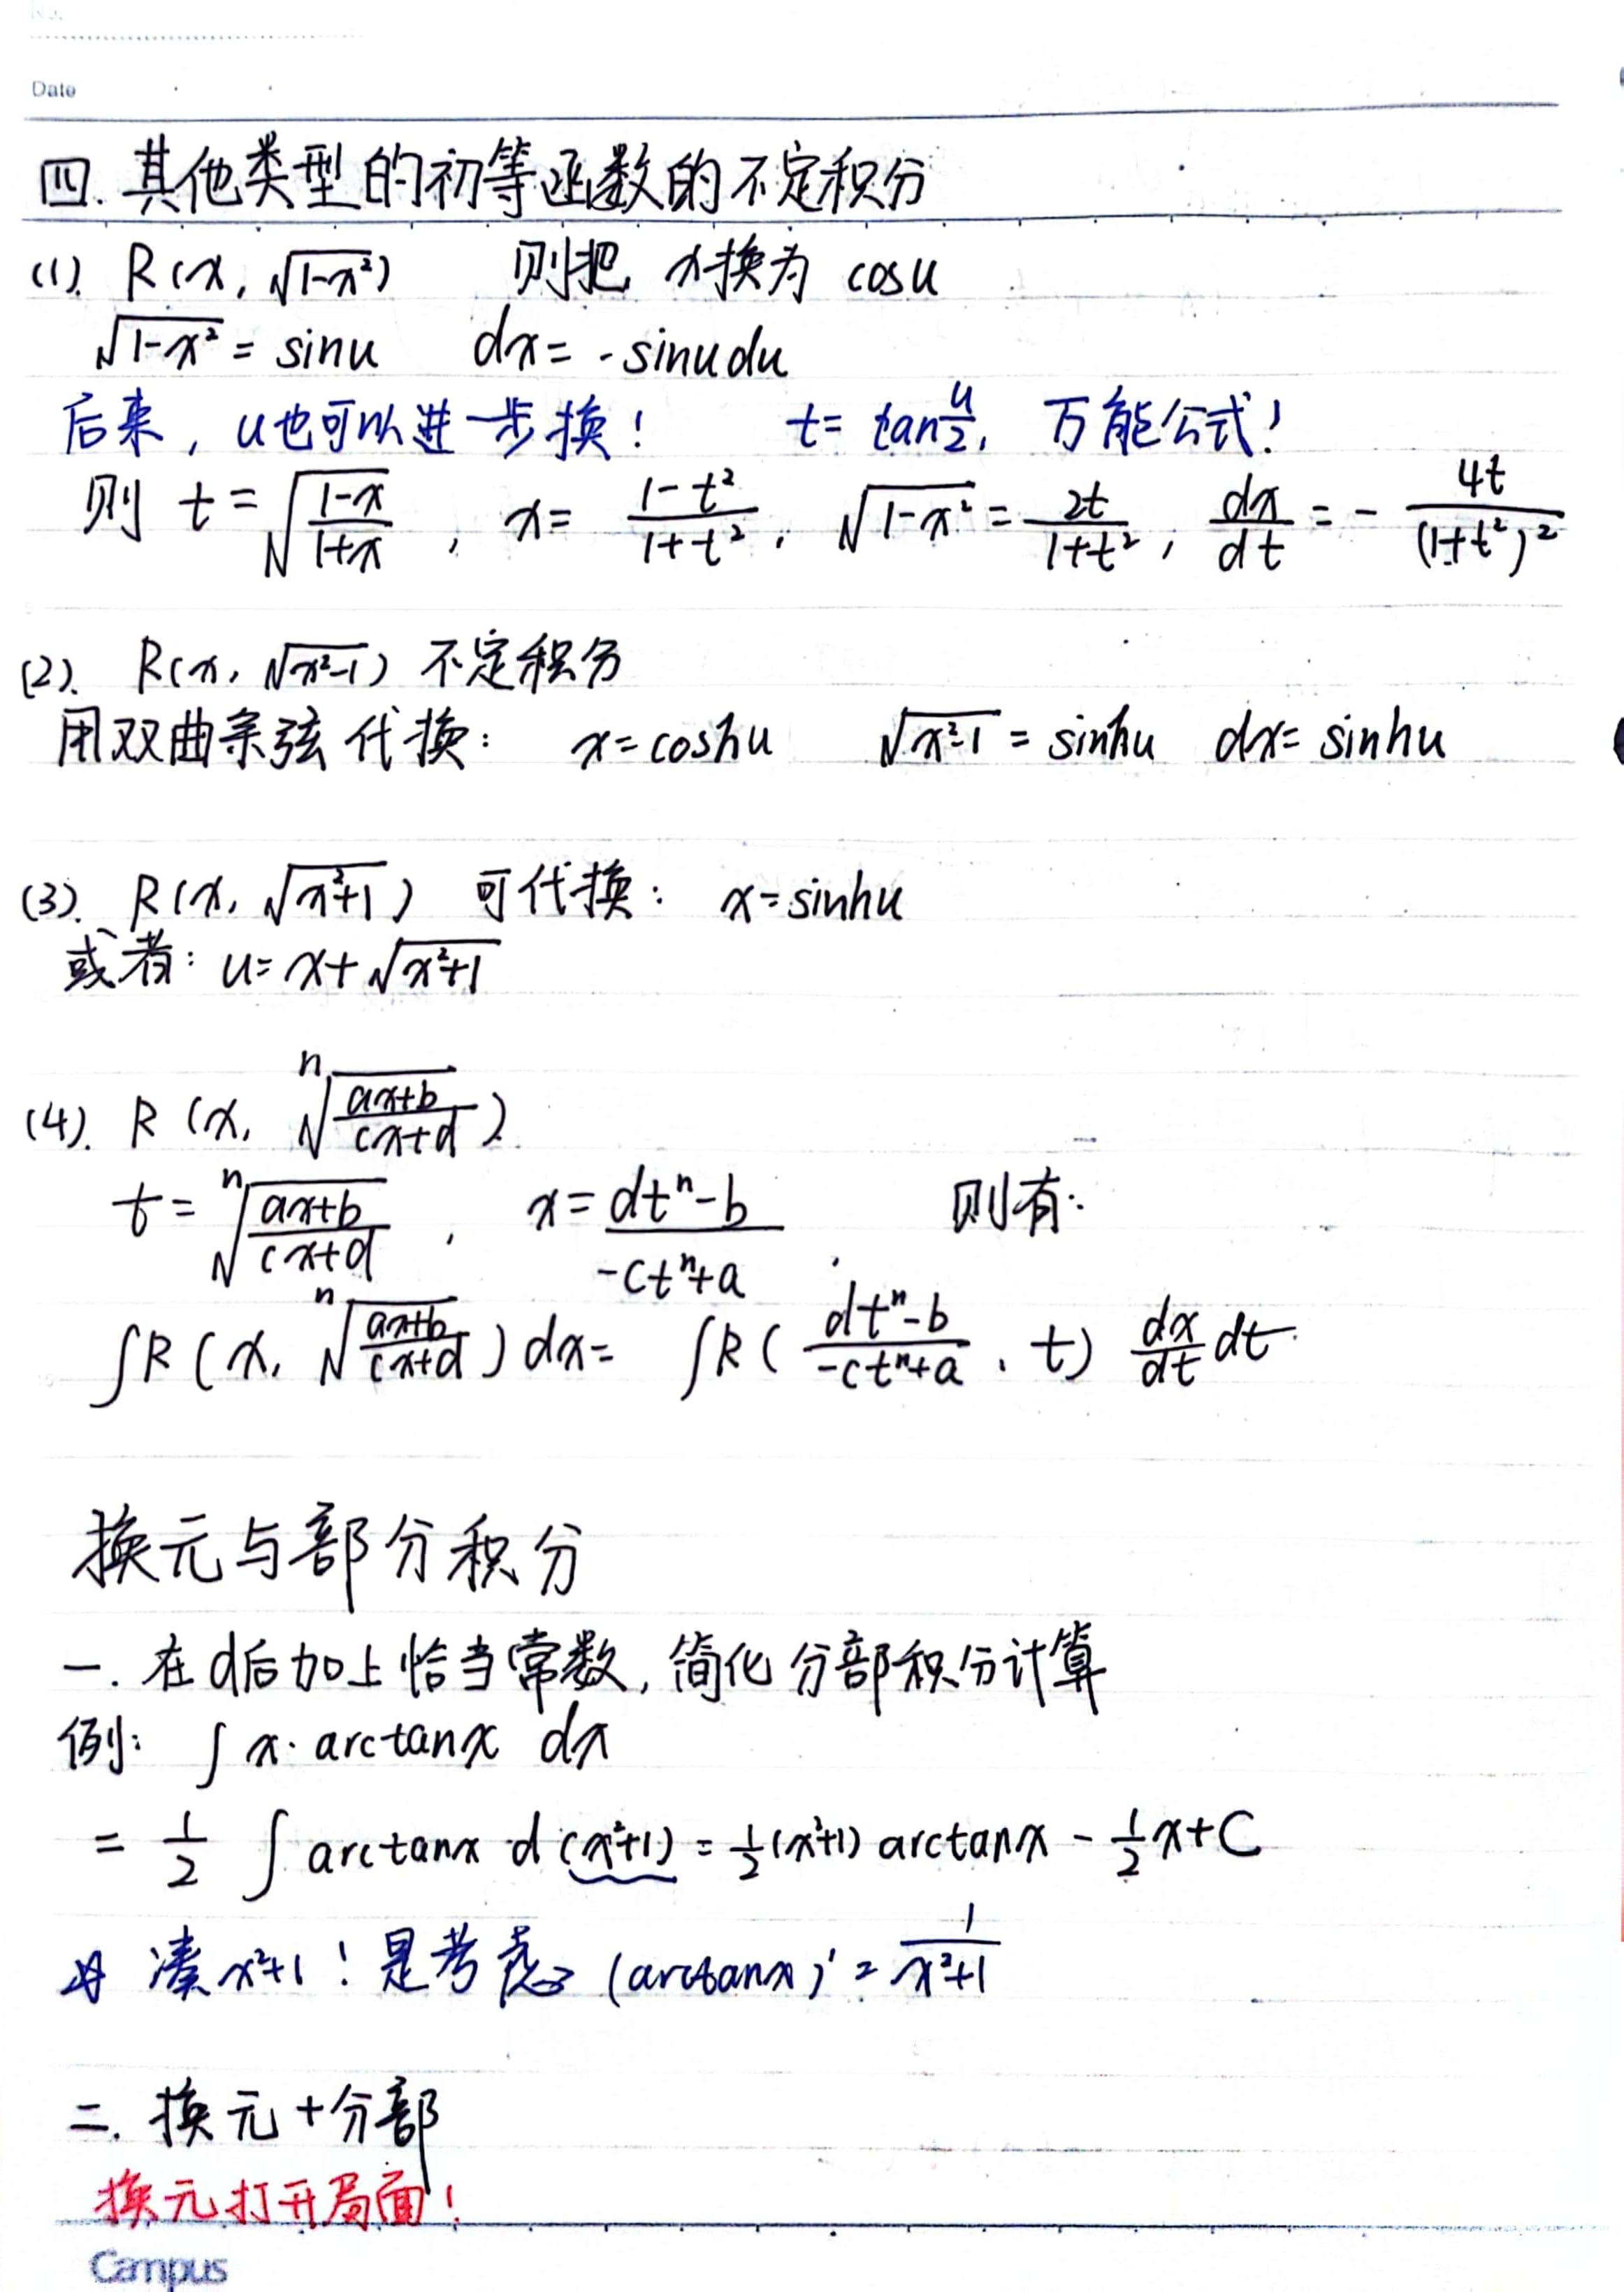 Date
四. 其他类型的初等函数的不定积分
(1). R(x, √(1-x²)) 则把 x换为 cosu
√(1-x²) = sinu dx = -sinudu
后来, u也可以进一步换! t= tan u/2, 万能公式!
则 t = √((1-x)/(1+x)), x = (1-t²)/(1+t²), √(1-x²) = 2t/(1+t²), dx/dt = - 4t/(1+t²)²
(2). R(x, √(x²-1)) 不定积分
用双曲余弦代换: x=coshu √(x²-1) = sinhu dx= sinhu
(3). R(x, √(x²+1)) 可代换: x=sinhu
或者: u= x+√(x²+1)
(4). R (x, ⁿ√((ax+b)/(cx+d)))
t = ⁿ√((ax+b)/(cx+d)), x = (dtⁿ-b)/(-ctⁿ+a) 则有:
∫R (x, ⁿ√((ax+b)/(cx+d))) dx = ∫R ((dtⁿ-b)/(-ctⁿ+a), t) dx/dt dt
换元与部分积分
一. 在d后加上恰当常数, 简化分部积分计算
例: ∫ x· arctanx dx
= 1/2 ∫ arctanx d (x²+1) = 1/2 (x²+1) arctanx - 1/2 x+C
凑 x²+1 ! 是考虑 (arctanx)' = 1/(x²+1)
二. 换元+分部
换元打开局面!
Campus